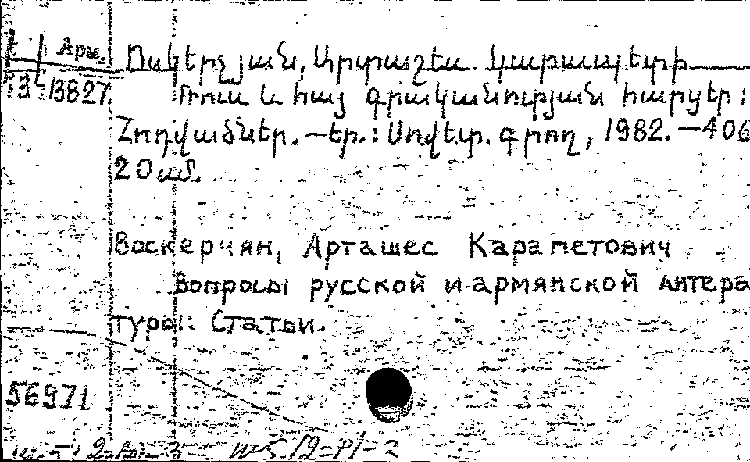 Арм. Ոսկերչյան, Արտաշես Կարապետի
13827 Ռուս և հայ գրականության հարցեր:
Հոդվածներ. — Եր.: Սովետ. գրող, 1982. — 406
20սմ.
Воскерчян, Арташес Карапетович
Вопросы русской и армянской литера
туры: Статьи.
56971